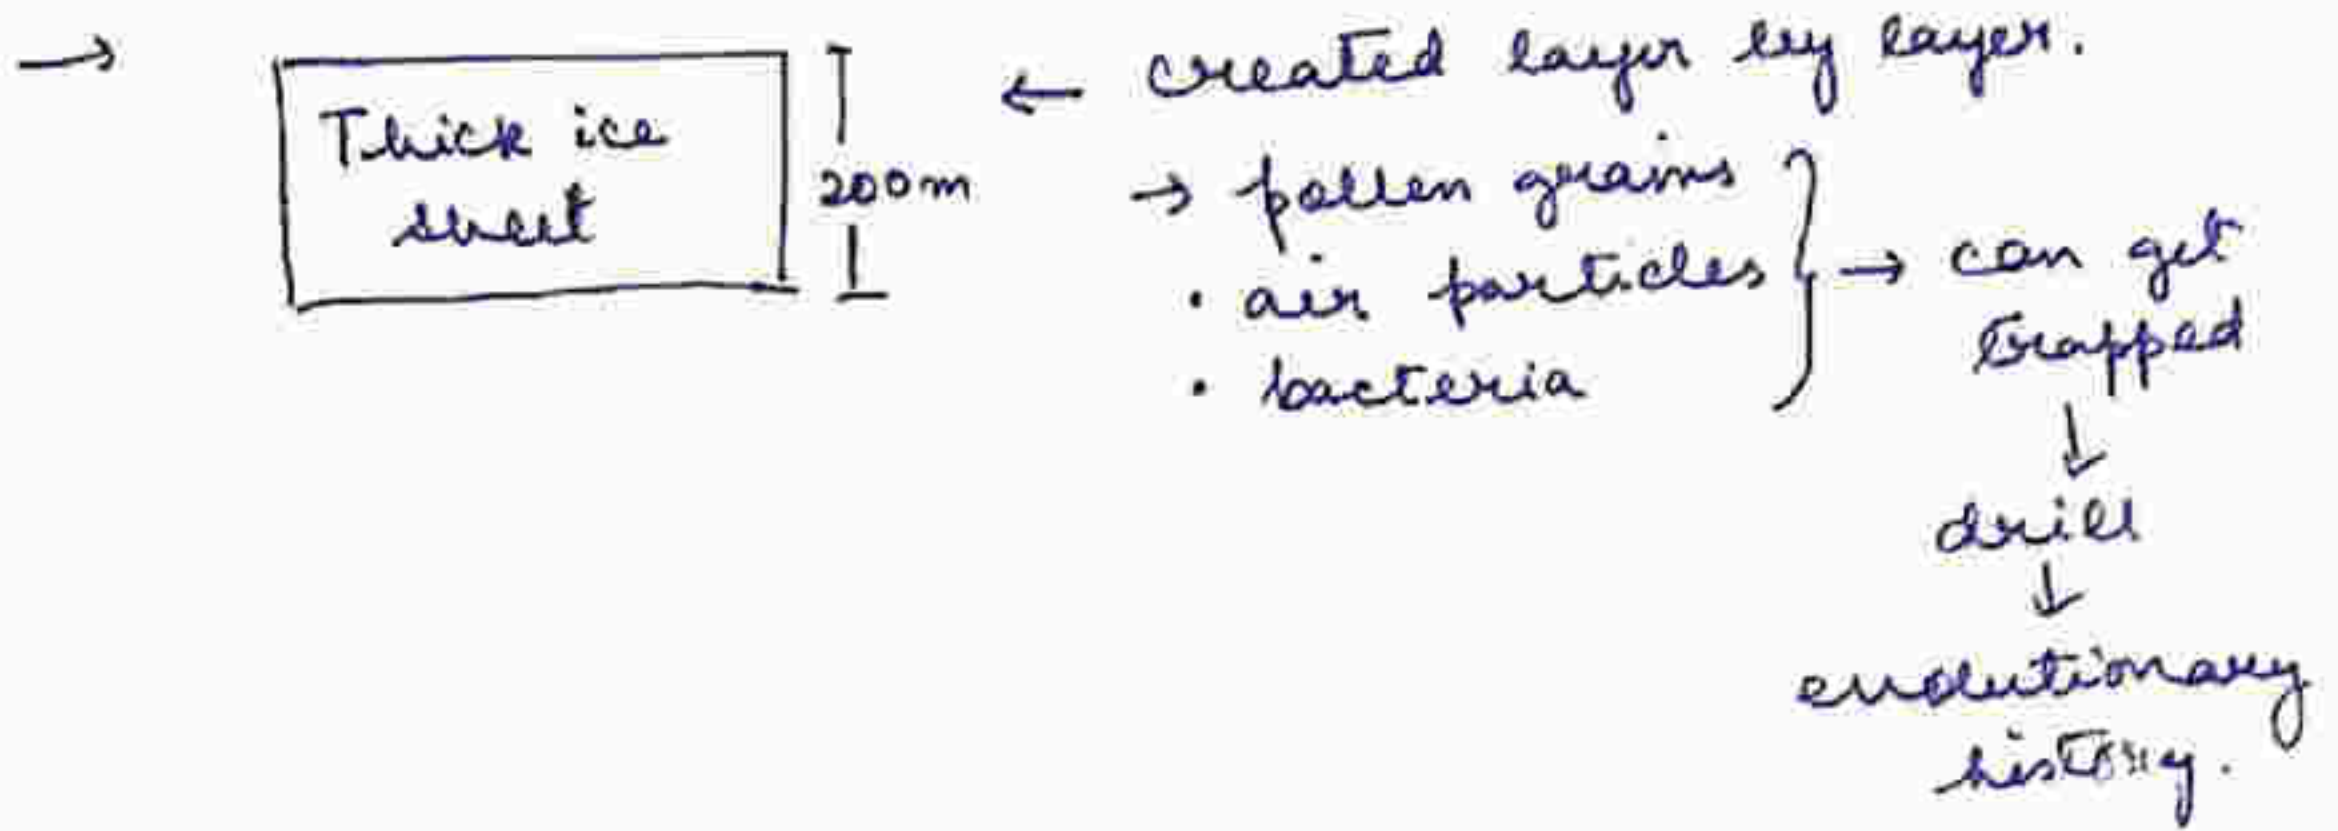 → Thick ice
sheet
200m
← created layer by layer.
→ pollen grains
• air particles
• bacteria
→ can get
trapped
↓
drill
↓
evolutionary
history.